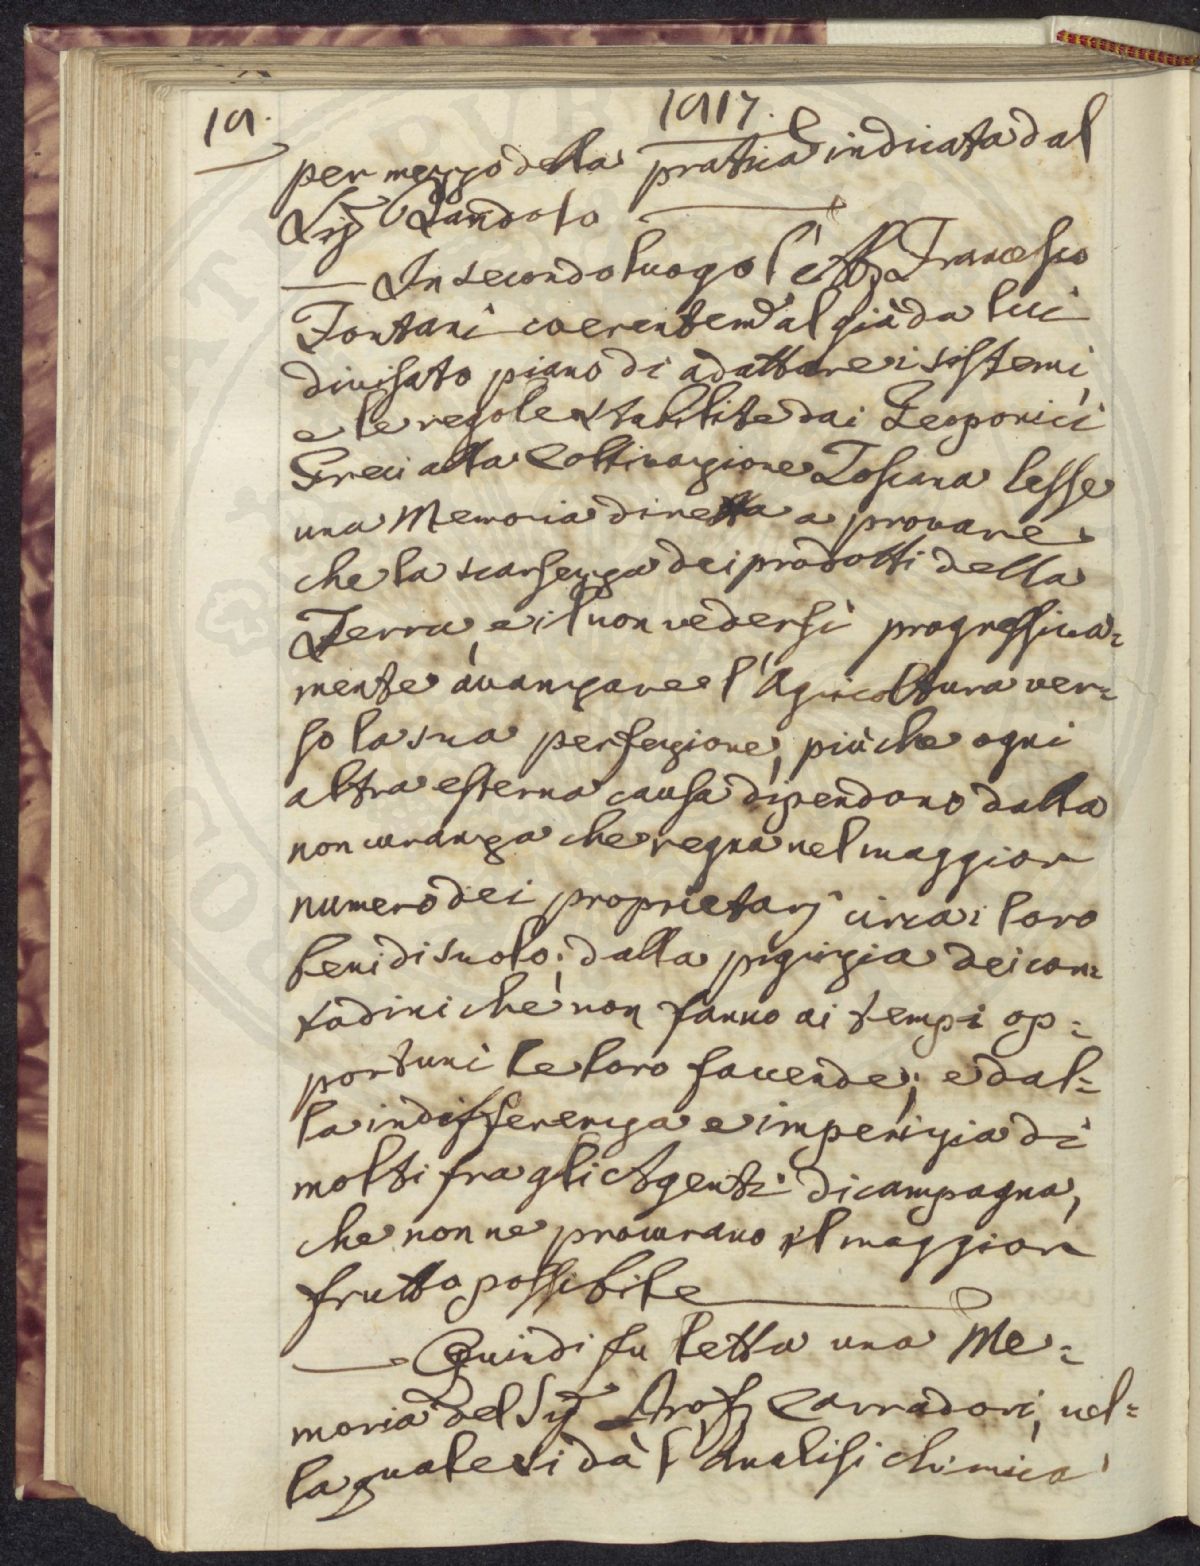 19. 1817.
per mezzo della pratica indicata dal
Sig.r Dandolo
In secondo luogo l'Ab. Francesco
Fontani coerentem.e al già da lui
divisato piano di adattare i sistemi,
e le regole stabilite dai Geoponici
Greci alla Coltivazione Toscana lesse
una Memoria diretta a provare
che la scarsezza dei prodotti della
Terra, e il non vedersi progressiva=
mente avanzare l'Agricoltura ver=
so la sua perfezione, più che ogni
altra esterna causa dipendono dalla
non curanza che regna nel maggior
numero dei proprietarj circa i loro
beni di suolo; dalla pigrizia dei con=
tadini che non fanno ai tempi op=
portuni le loro faccende; e dal=
la indifferenza e imperizia di
molti fra gli Agenti di campagna,
che non ne procurano il maggior
frutto possibile
Quindi fu letta una Me=
moria del Sig.r Prof. Carradori, nel=
la quale si dà l'Analisi chimica